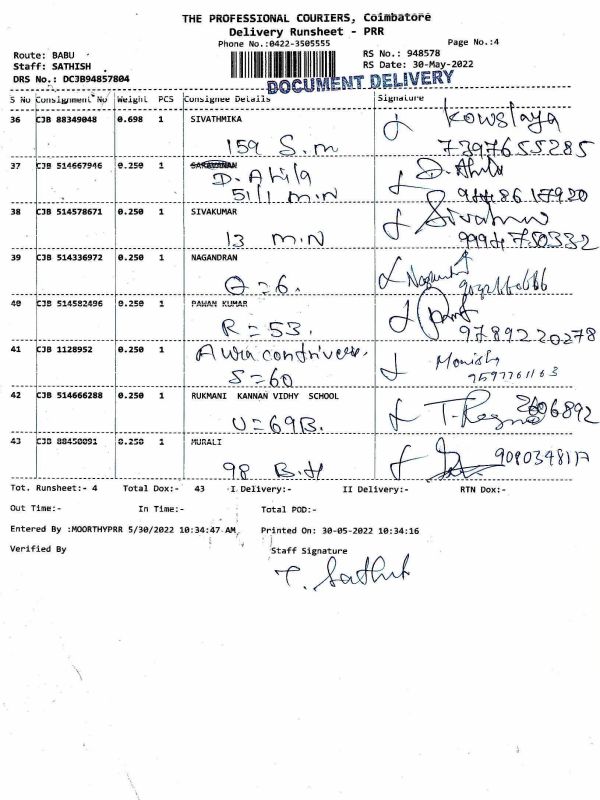 THE PROFESSIONAL COURIERS, Coimbatore
Delivery Runsheet - PRR
Phone No.:0422-3505555
Page No.:4
Route: BABU
RS No.: 948578
Staff: SATHISH
RS Date: 30-May-2022
DRS No.: DCJB94857804
DOCUMENT DELIVERY
S No Consignment No Weight PCS Consignee Details Signature
36 CJB 88349048 0.698 1 SIVATHMIKA Kowslaya
159 S.m 7397655285
37 CJB 514667946 0.250 1 SARAVANAN
D. Akila D. Akila
51/1 m.N
38 CJB 514578671 0.250 1 SIVAKUMAR
13 m.N
39 CJB 514336972 0.250 1 NAGANDRAN
Q = 6.
40 CJB 514582496 0.250 1 PAWAN KUMAR
R = 53. 9789220278
41 CJB 1128952 0.250 1 Monish
S = 60 7597761163
42 CJB 514666288 0.250 1 RUKMANI KANNAN VIDHY SCHOOL
U = 69B.
43 CJB 88450091 0.250 1 MURALI
98 B.H
Tot. Runsheet:- 4 Total Dox:- 43 I Delivery:- II Delivery:- RTN Dox:-
Out Time:- In Time:- Total POD:-
Entered By :MOORTHYPRR 5/30/2022 10:34:47 AM Printed On: 30-05-2022 10:34:16
Verified By Staff Signature